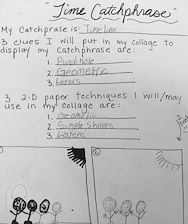 "Time Catchphrase"
My Catchphrase is: Timeline
3 clues I will put in my collage to
display my catchphrase are:
1. Punchhole
2. Geometric
3. Layers
3 2-D paper techniques I will/may
use in my collage are:
1. Geometric
2. Simple Shapes
3. Layers